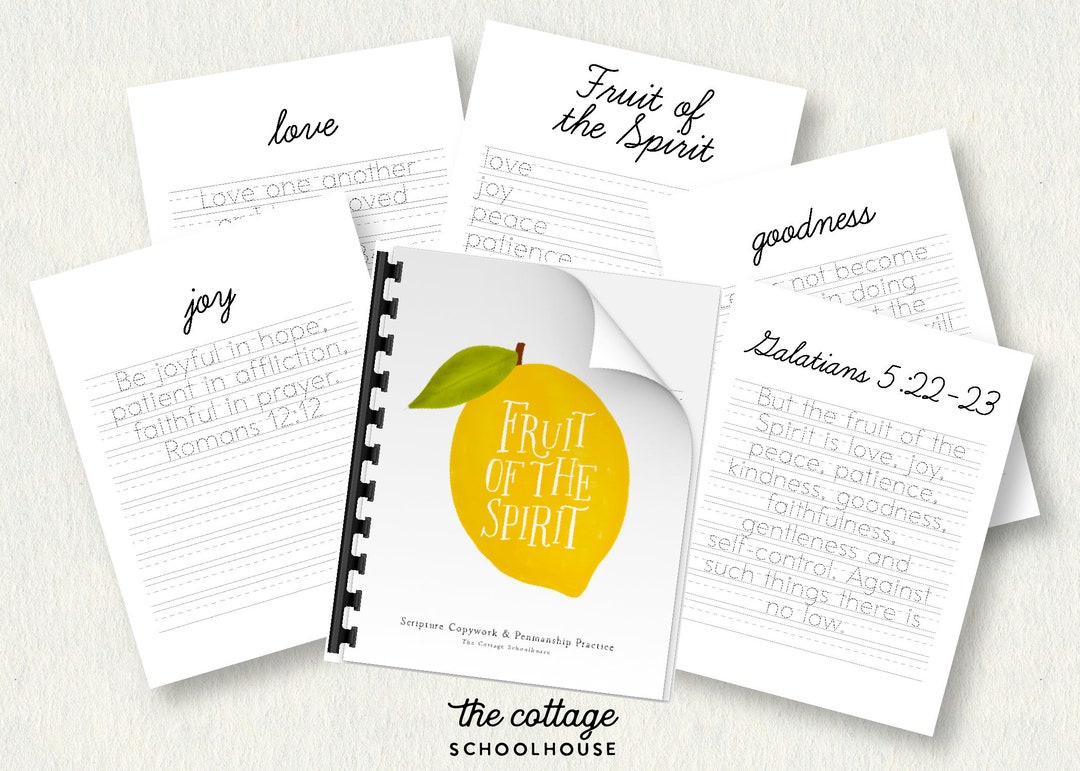 love
Love one another
loved
Fruit of
the Spirit
love
joy
peace
patience
goodness
not become
in doing
the
will
joy
Be joyful in hope,
patient in affliction,
faithful in prayer.
Romans 12:12
FRUIT
OF THE
SPIRIT
Scripture Copywork & Penmanship Practice
The Cottage Schoolhouse
Galatians 5:22-23
But the fruit of the
Spirit is love, joy,
peace, patience,
kindness, goodness,
faithfulness,
gentleness and
self-control. Against
such things there is
no law.
the cottage
SCHOOLHOUSE